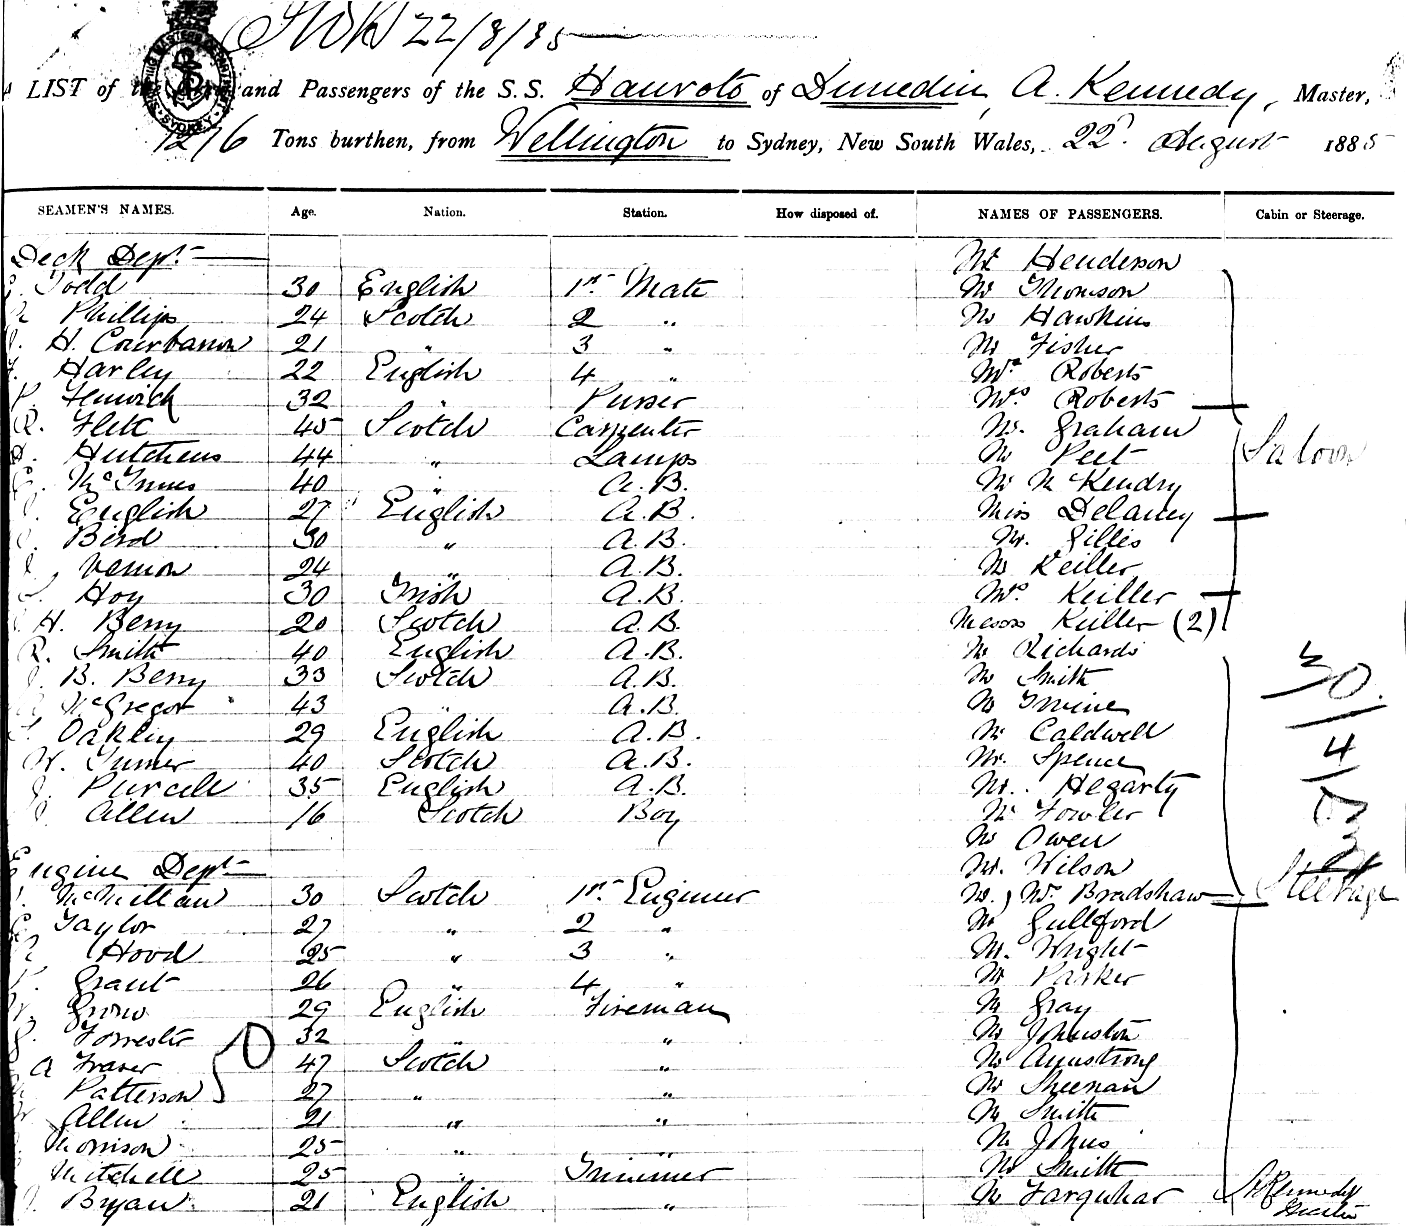 22/8/85
LIST of the and Passengers of the S.S. Hauroto of Dunedin, A. Kennedy, Master,
1276 Tons burthen, from Wellington to Sydney, New South Wales, 22nd August 1885
SEAMEN'S NAMES. Age. Nation. Station. How disposed of. NAMES OF PASSENGERS. Cabin or Steerage.
Deck Dept. Mr Henderson
Todd 30 English 1st Mate Mr Thomson
Phillips 24 Scotch 2 " Mr Hawkins
H. 21 " 3 " Mr Fisher
Harley 22 English 4 " Mr Roberts
P. Fenwick 32 " Purser Mrs Roberts
R. Flett 45 Scotch Carpenter Mr. Graham
H. Hutchens 44 " Lamps Mr Peet Saloon
McInnes 40 " A.B. Mr McKendry
English 27 English A.B. Miss Delaney
Bird 30 " A.B. Mr. Gillis
Vernon 24 " A.B. Mr Keiller
Hoy 30 Irish A.B. Mrs Keiller
H. Berry 20 Scotch A.B. Messrs Keiller (2)
R. Smith 40 English A.B. Mr Richards
B. Berry 33 Scotch A.B. Mr Smith 30
McGregor 43 " A.B. Mr Irvine
Oakley 29 English A.B. Mr Caldwell
W. Turner 40 Scotch A.B. Mr. Spence 4
J. Purcell 35 English A.B. Mr. Hegarty
J. Allen 16 Scotch Boy Mr Fowler
Mr Owen
Engine Dept. Mr. Wilson
McMillan 30 Scotch 1st Engineer Mr. & Mrs. Bradshaw Steerage
Taylor 27 " 2 " Mr Gullford
Hood 25 " 3 " Mr. Wright
Grant 26 " 4 " Mr Parker
29 English Fireman Mr Gray
Forrester 32 " " Mr Johnston
A Fraser 47 Scotch " Mr Armstrong
Patterson 27 " " Mr Sheenan
Allen 21 " " Mr Smith
Morrison 25 " " Mr Johns
Mitchell 25 " Trimmer Mr Smith
Bryan 21 English " Mr Farquhar A Kennedy
Master